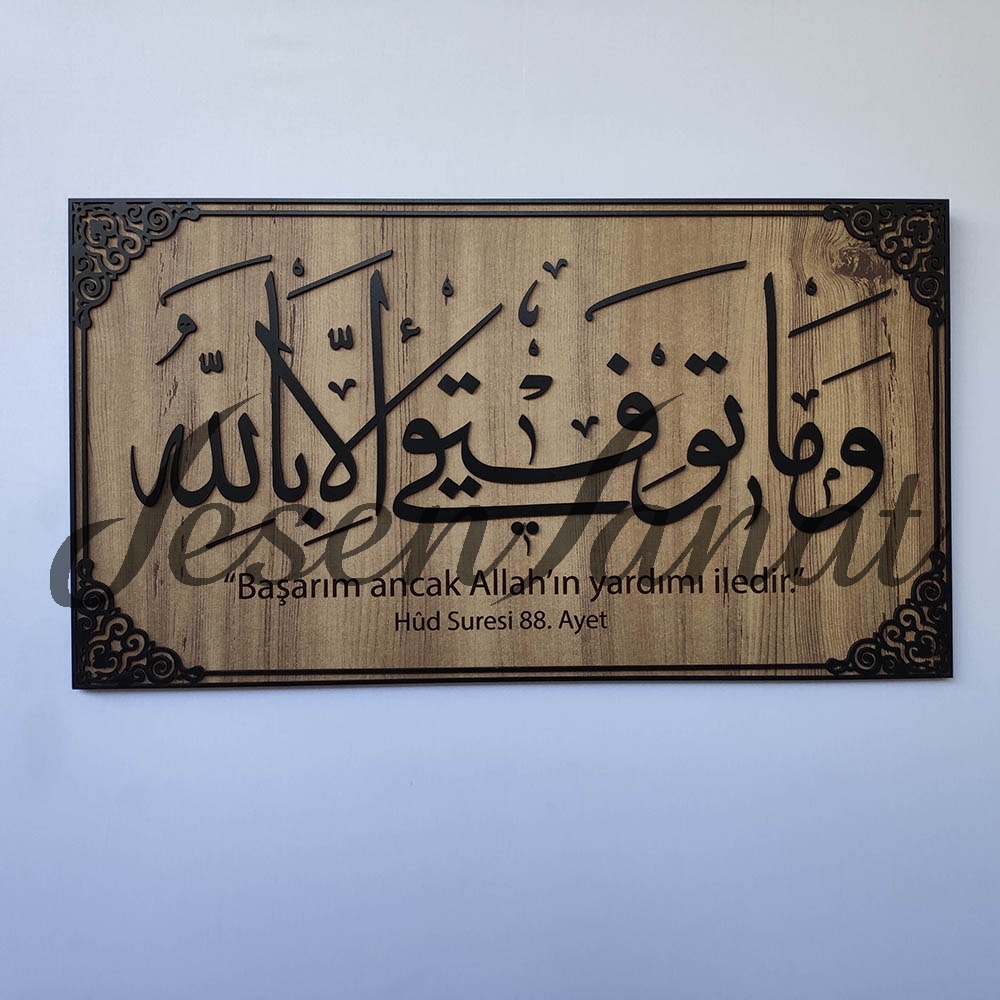 وَمَا تَوْفِيقِي إِلَّا بِاللَّهِ
“Başarım ancak Allah’ın yardımı iledir.”
Hûd Suresi 88. Ayet
DesenSanat